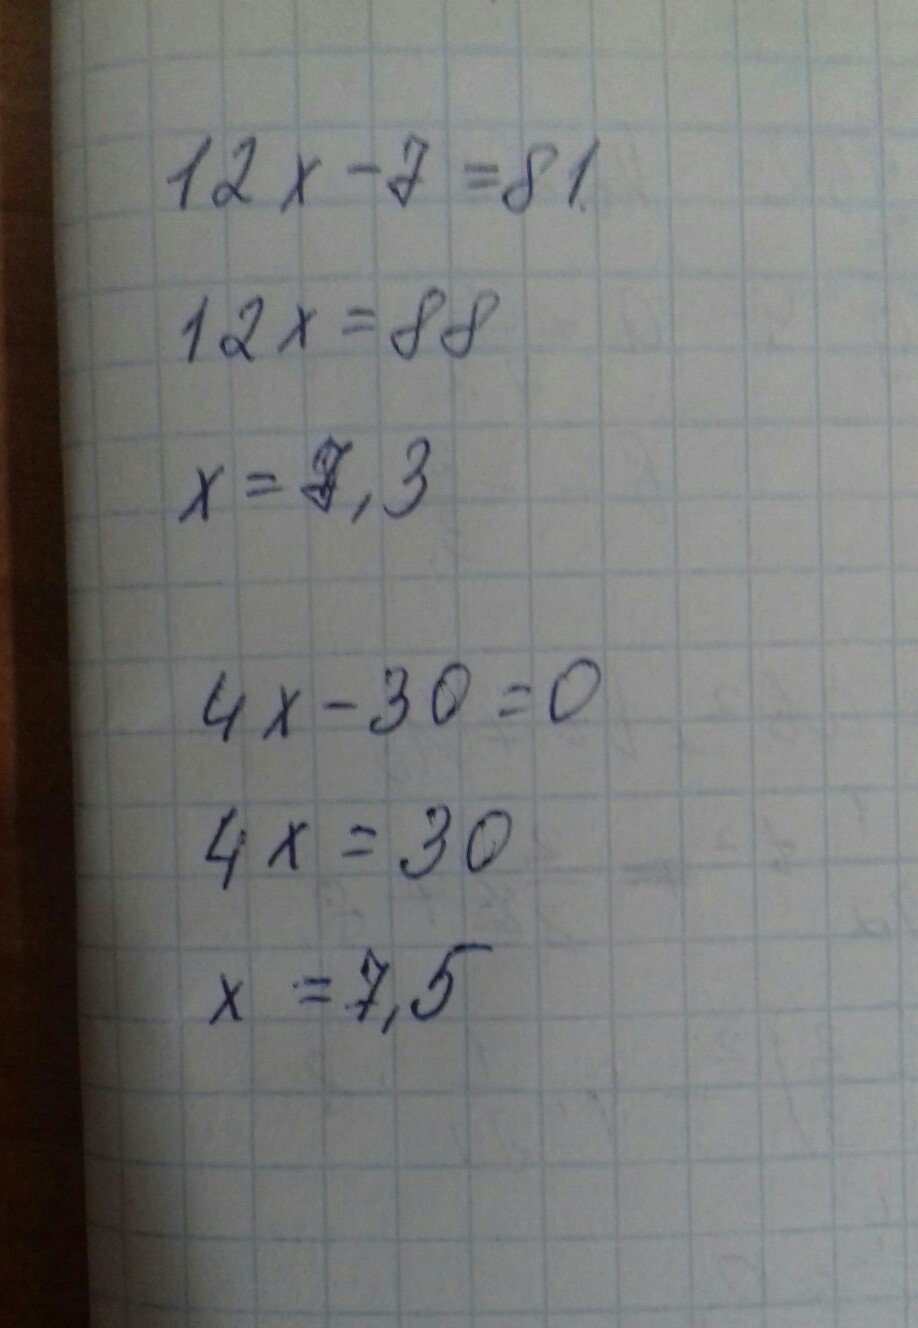 12x-7=81
12x=88
x=7,3
4x-30=0
4x=30
x=7,5